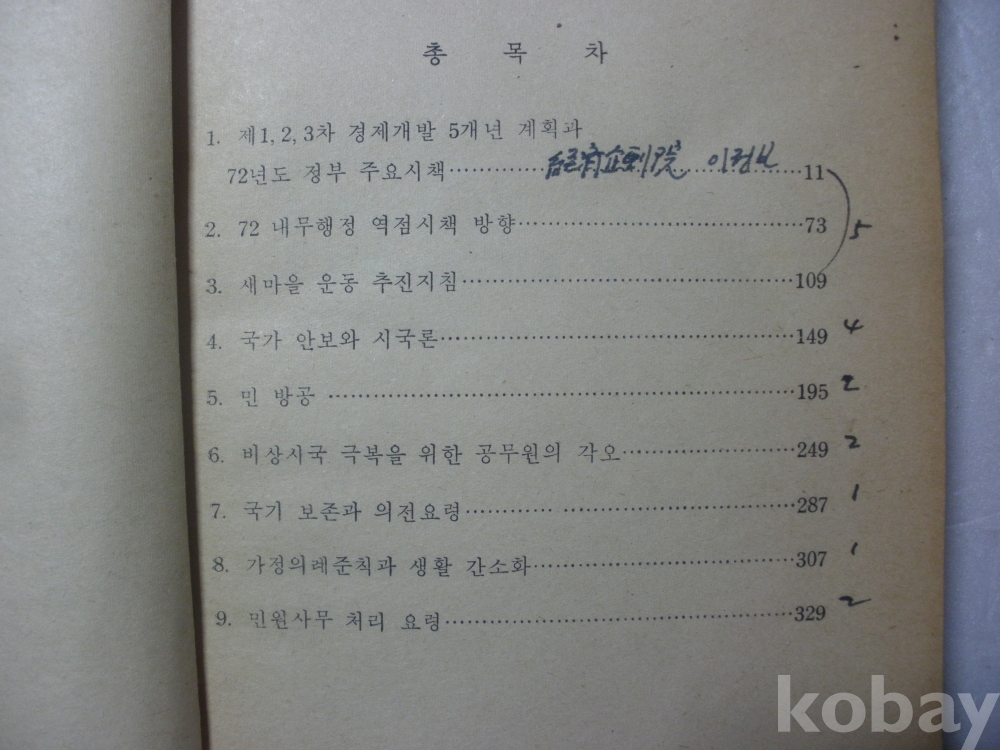 총 목 차
1. 제1, 2, 3차 경제개발 5개년 계획과
72년도 정부 주요시책 經濟企劃院 11
2. 72 내무행정 역점시책 방향 73
5
3. 새마을 운동 추진지침 109
4. 국가 안보와 시국론 149 4
5. 민 방공 195 2
6. 비상시국 극복을 위한 공무원의 각오 249 2
7. 국기 보존과 의전요령 287 1
8. 가정의례준칙과 생활 간소화 307 1
9. 민원사무 처리 요령 329 2
kobay